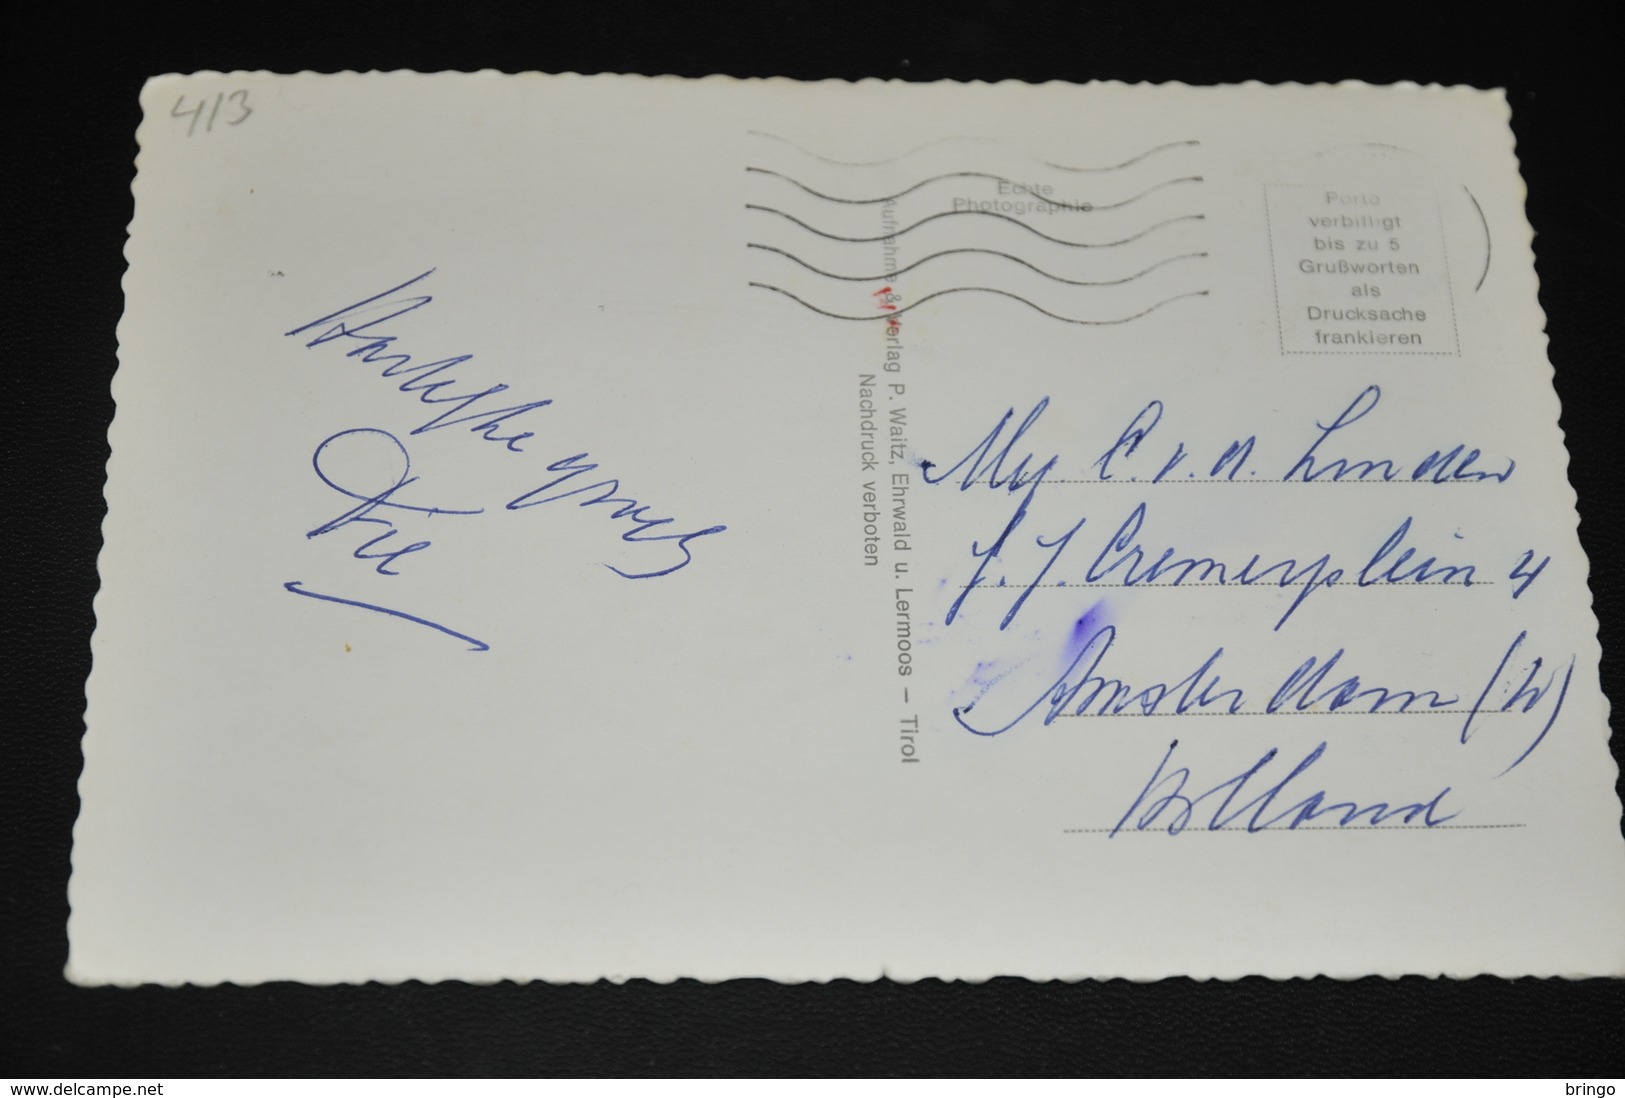 413
Echte
Photographie
Porto
verbilligt
bis zu 5
Grußworten
als
Drucksache
frankieren
Aufnahme & Verlag P. Waitz, Ehrwald u. Lermoos – Tirol
Nachdruck verboten
Hartelijke groeten
Fie
C. v. d. Linden
J. J. Cremerplein 4
Amsterdam (W)
Holland
www.delcampe.net
bringo